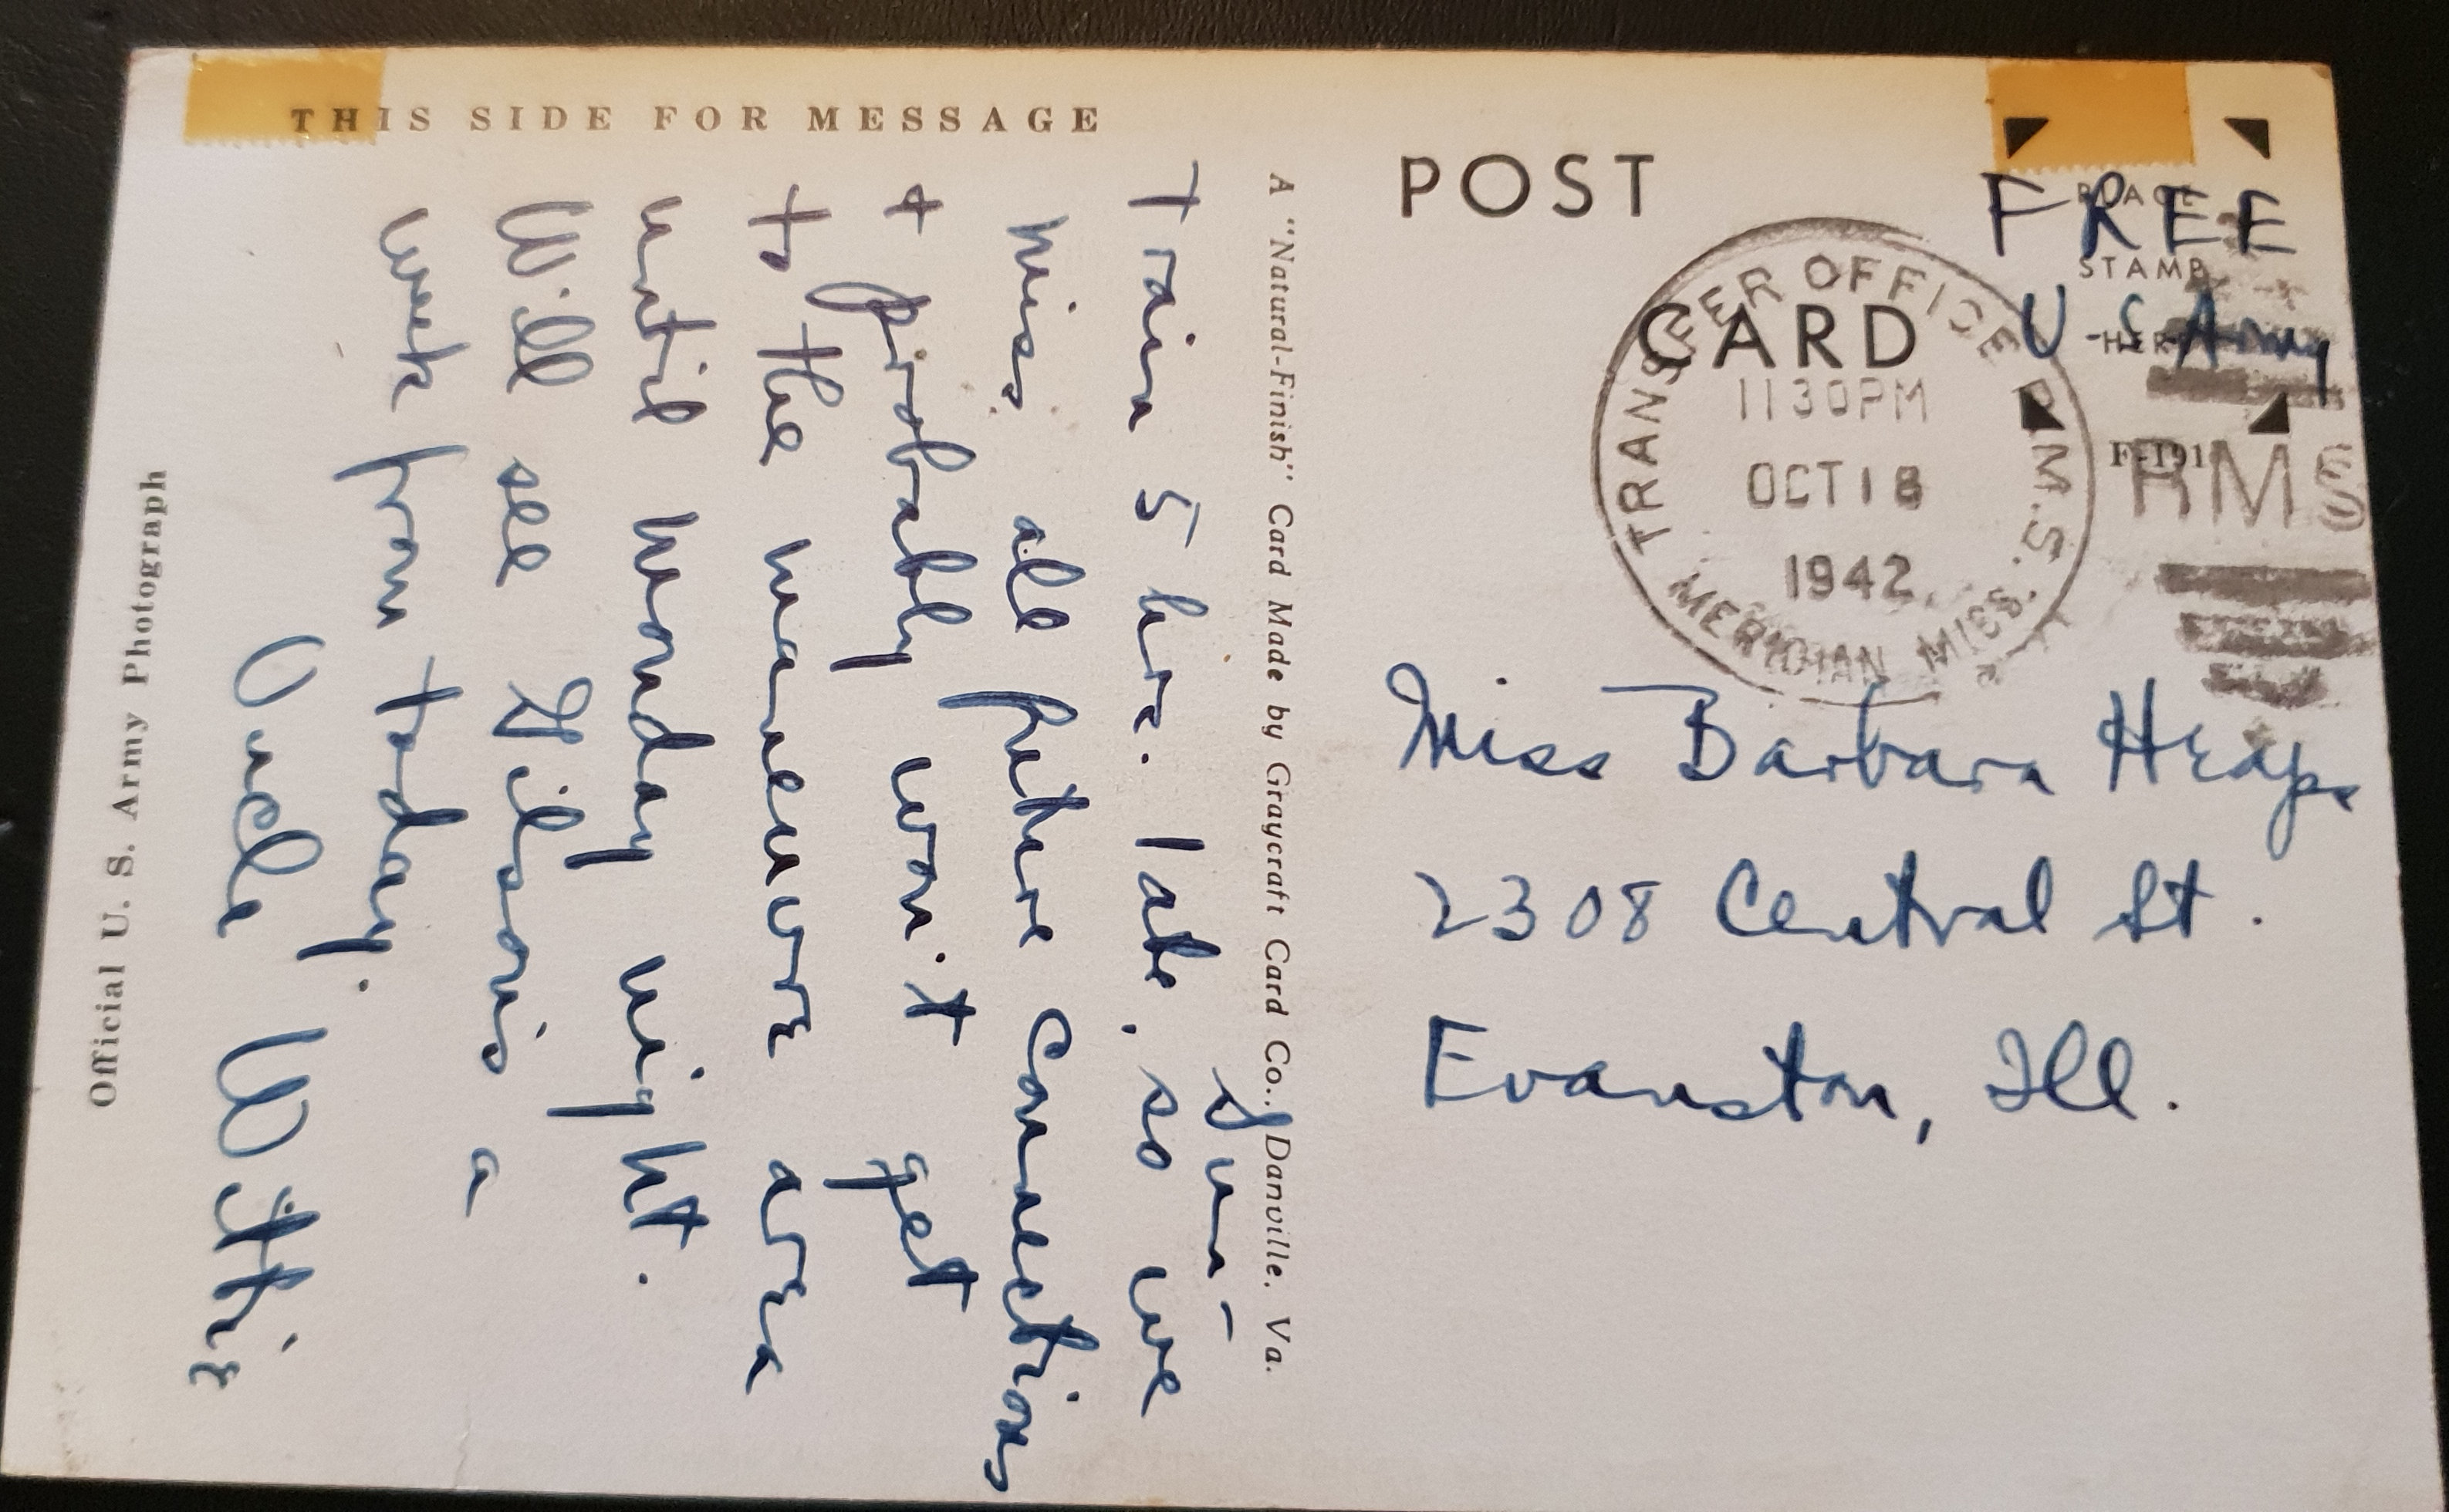 THIS SIDE FOR MESSAGE
Sun-
Train 5 hrs. late, so we
miss all future connections
+ probably won't get
to the maneuvre area
until Monday night.
Will see Gilson's a
week from today.
Uncle Withi
Official U. S. Army Photograph
A "Natural-Finish" Card Made by Graycraft Card Co., Danville, Va.
POST
CARD
PLACE
STAMP
HERE
FREE
U S Army
TRANSFER OFFICE R.M.S.
1130PM
OCT 18
1942
MERIDIAN MISS.
RMS
Miss Barbara Heaps
2308 Central St.
Evanston, Ill.